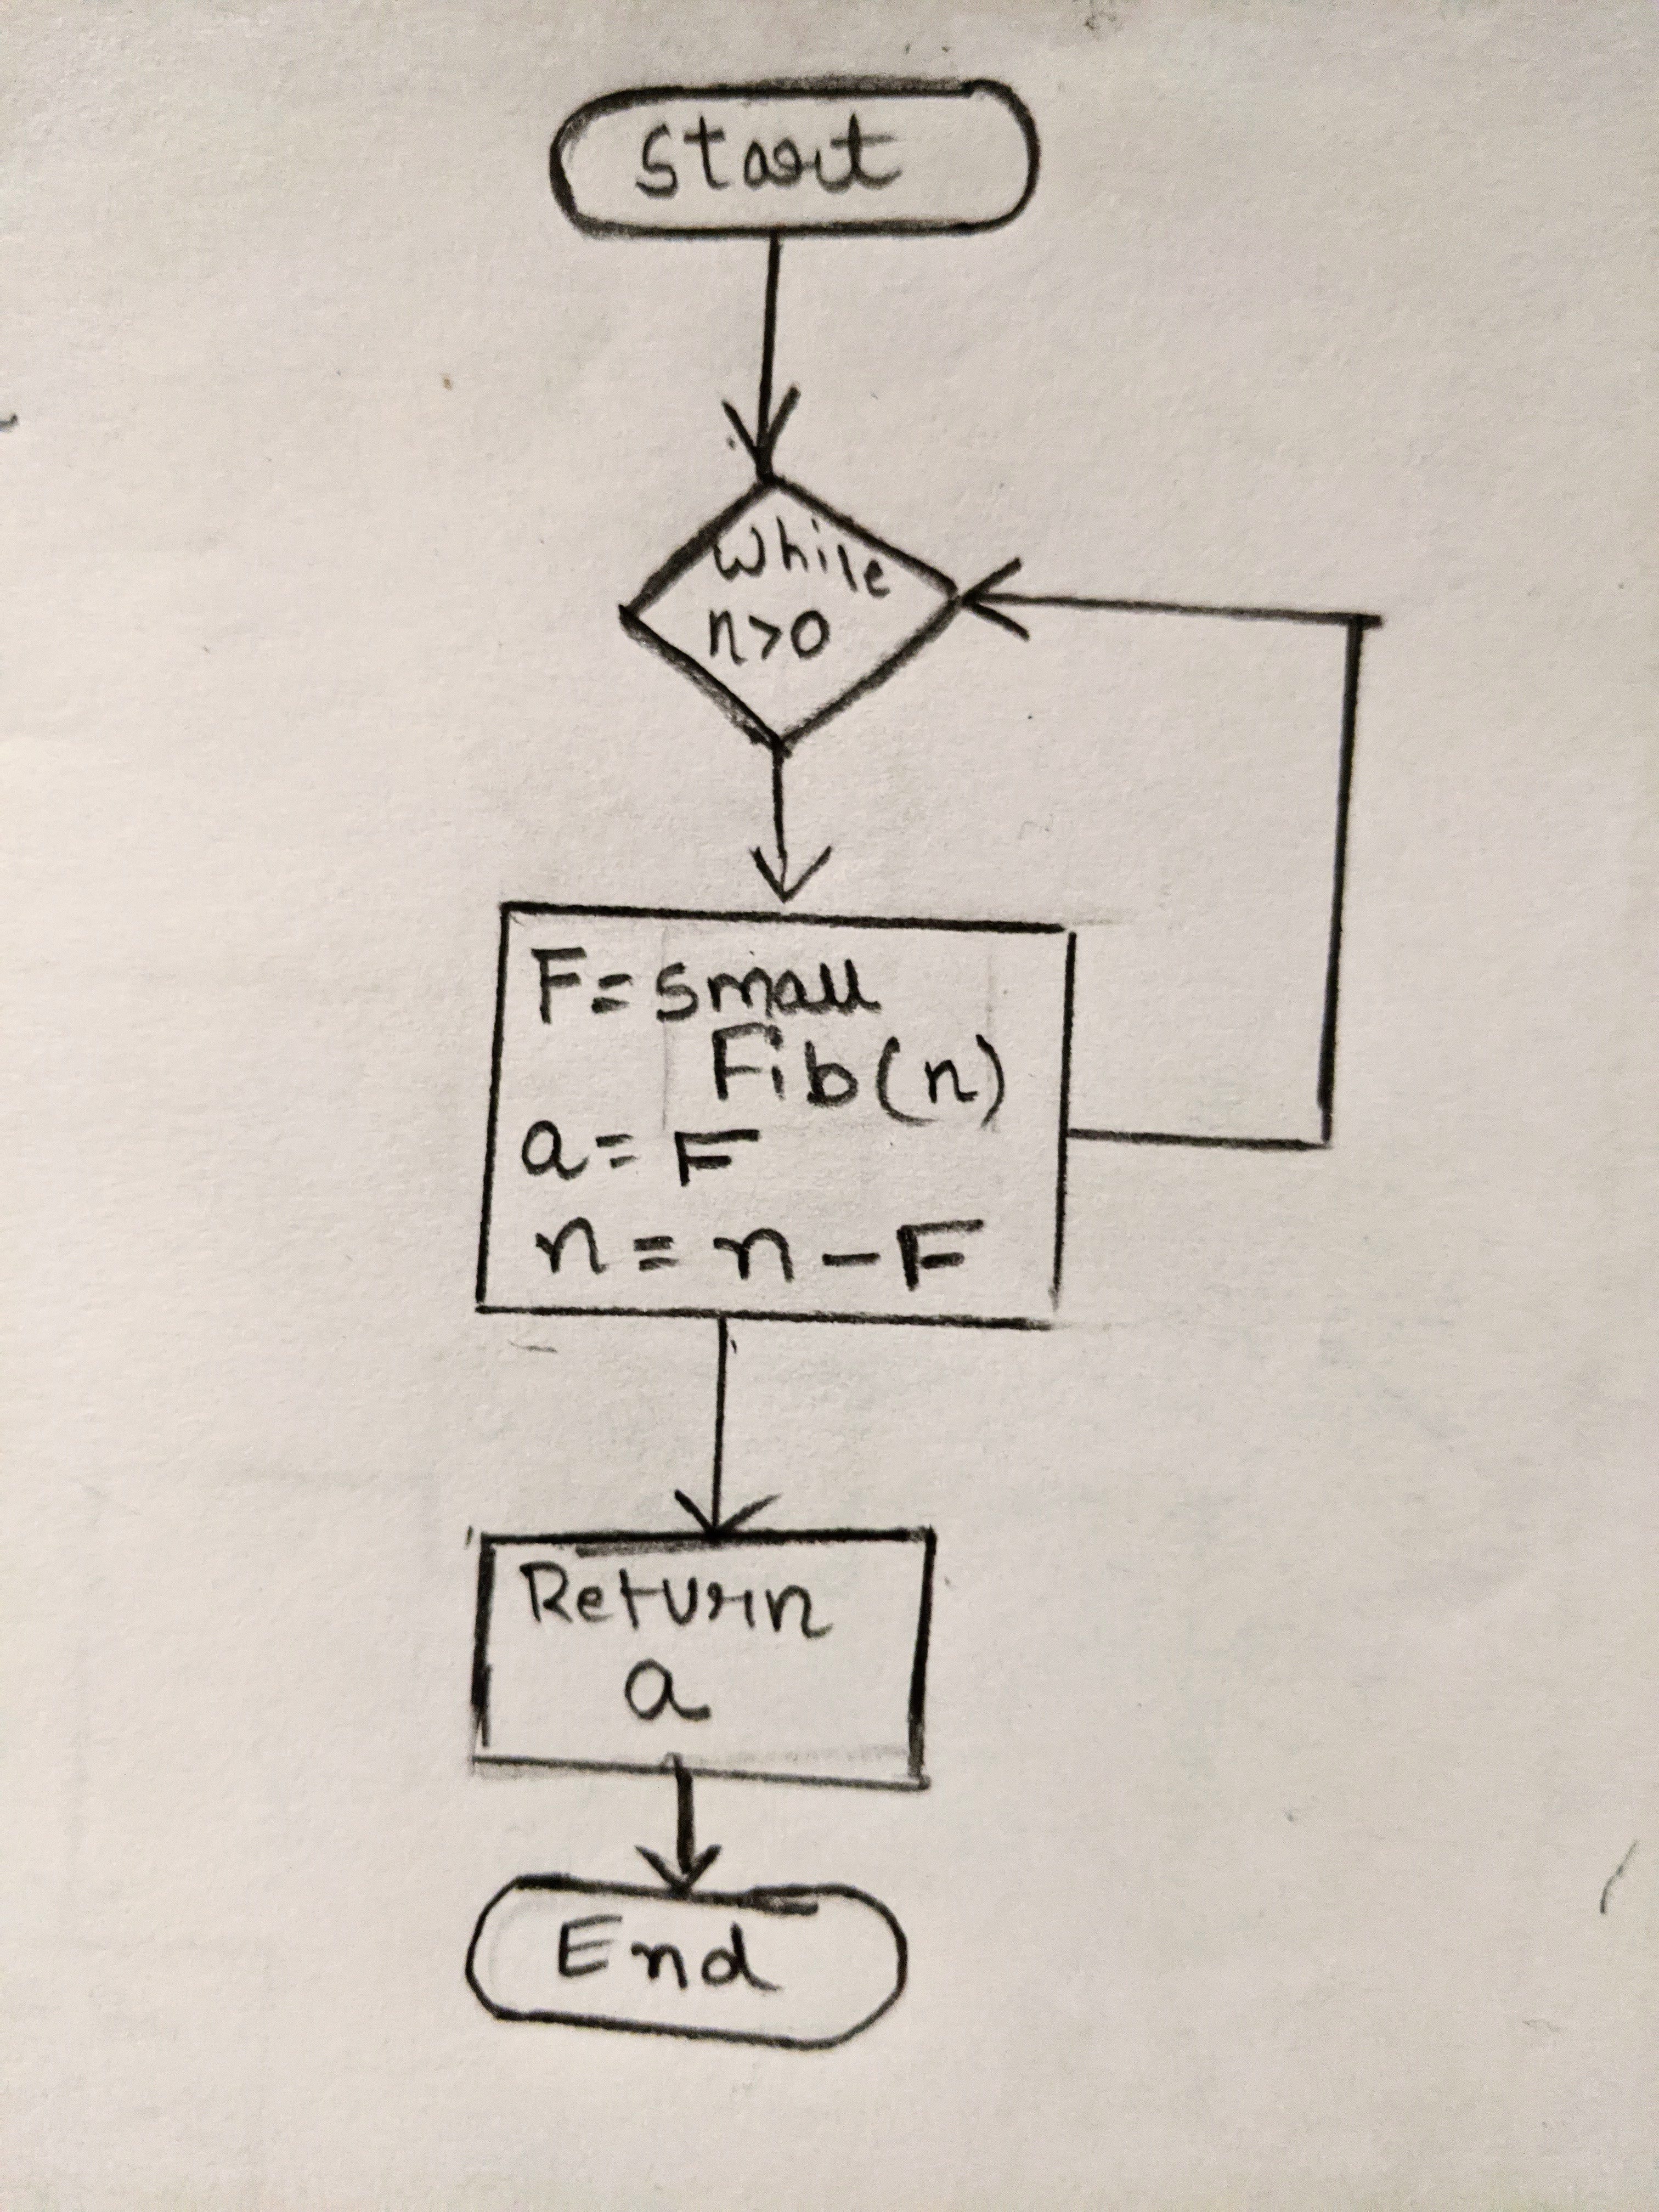 Start
While
n>0
F=small
Fib(n)
a=F
n=n-F
Return
a
End